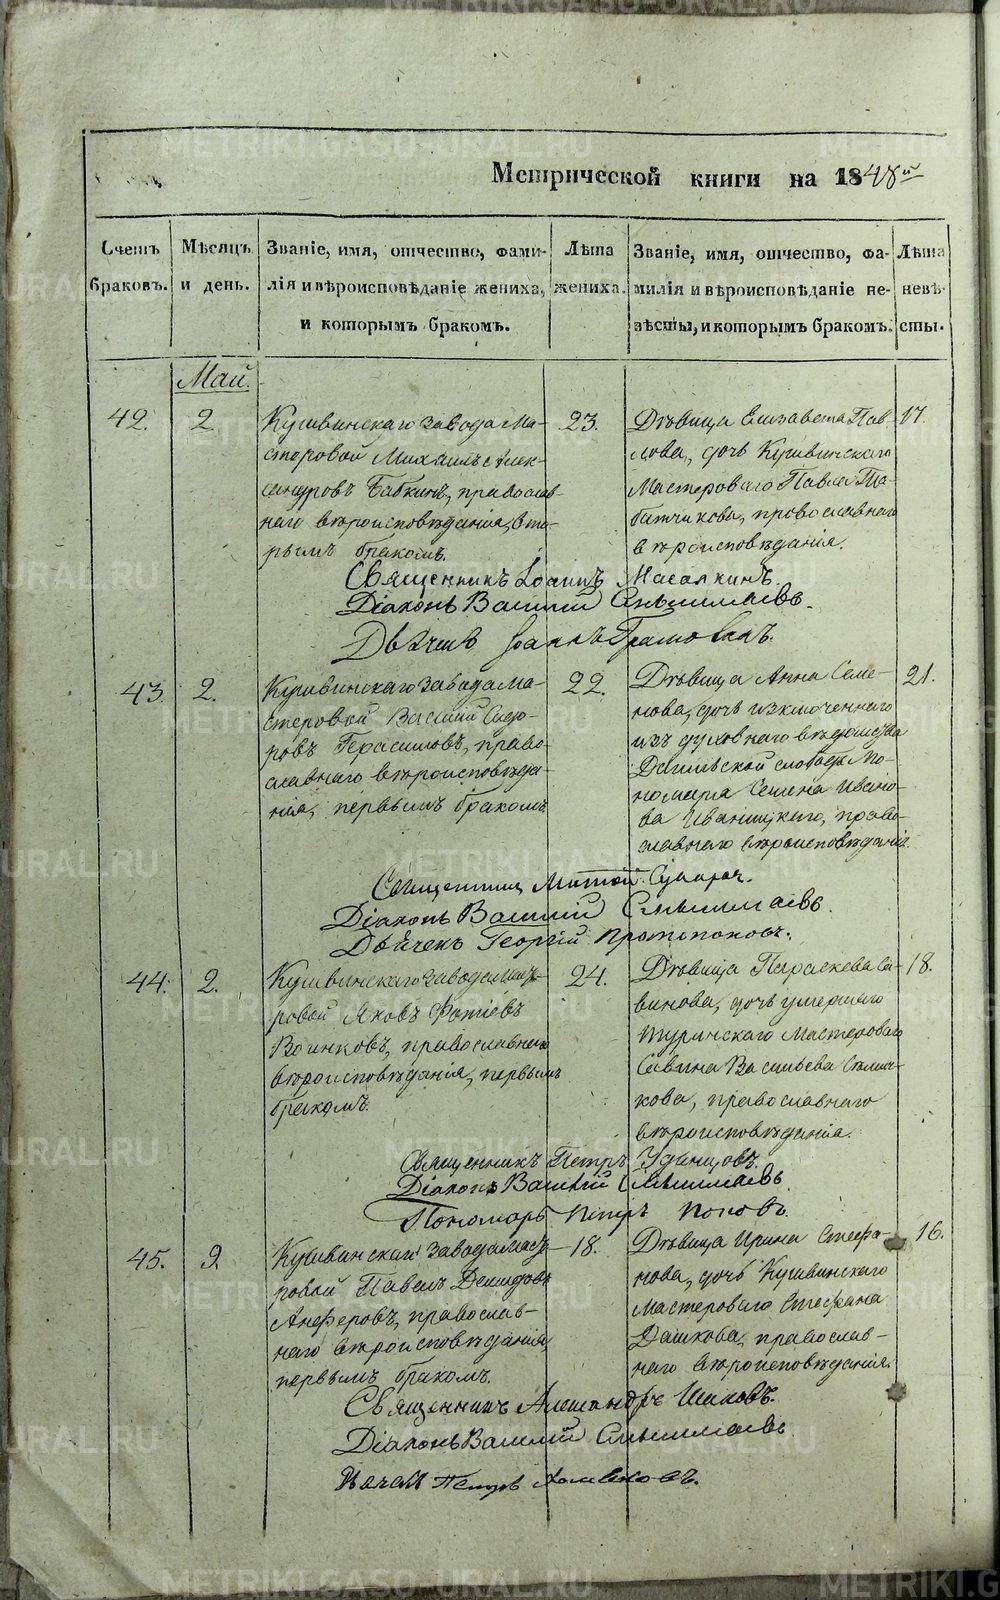 Метрической книги на 1848й
Счетъ браковъ.
Мѣсяцъ и день.
Званіе, имя, отчество, фами-
лія и вѣроисповѣданіе жениха,
и которымъ бракомъ.
Лѣта жениха.
Званіе, имя, отчество, фа-
милія и вѣроисповѣданіе не-
вѣсты, и которымъ бракомъ.
Лѣта невѣ-
сты.
Май.
42.
2.
Кушвинскаго завода Ма-
стеровой Михаилъ Алек-
сандровъ Бабкинъ, православ-
наго вѣроисповѣданія, вто-
рымъ бракомъ.
23.
Дѣвица Елизавета Пав-
лова, дочь Кушвинскаго
Мастероваго Павла Та-
батчикова, православнаго
вѣроисповѣданія.
17.
Священникъ Іоаннъ
Діаконъ Василий
43.
2.
Кушвинскаго завода Ма-
стеровой Василий Сидо-
ровъ Герасимовъ, право-
славнаго вѣроисповѣда-
нія, первымъ бракомъ
22.
Дѣвица Анна Семе-
нова, дочь изключеннаго
изъ духовнаго вѣдомства
слободы По-
номаря Семена Ивано-
ва Иваницкаго, право-
славнаго вѣроисповѣданія.
21.
Священник
Діаконъ Василий
Дьячекъ Георгій Протопоповъ.
44.
2.
Кушвинскаго завода Масте-
ровой Яковъ Фотіевъ
Воинковъ, православнаго
вѣроисповѣданія, первымъ
бракомъ.
24.
Дѣвица Параскева Са-
винова, дочь умершаго
Туринскаго Мастероваго
Савина Васильева
кова, православнаго
вѣроисповѣданія.
18.
Священникъ Петръ Удинцовъ.
Діаконъ Василий
Пономарь Петръ Поповъ.
45.
9.
Кушвинскаго завода Масте-
ровой Павелъ Демидовъ
Анферовъ, православ-
наго вѣроисповѣданія,
первымъ бракомъ.
18.
Дѣвица Ирина Стефа-
нова, дочь Кушвинскаго
Мастероваго Стефана
Дашкова, православ-
наго вѣроисповѣданія.
16.
Священникъ Александръ
Діаконъ Василий
METRIKI.GASO-URAL.RU